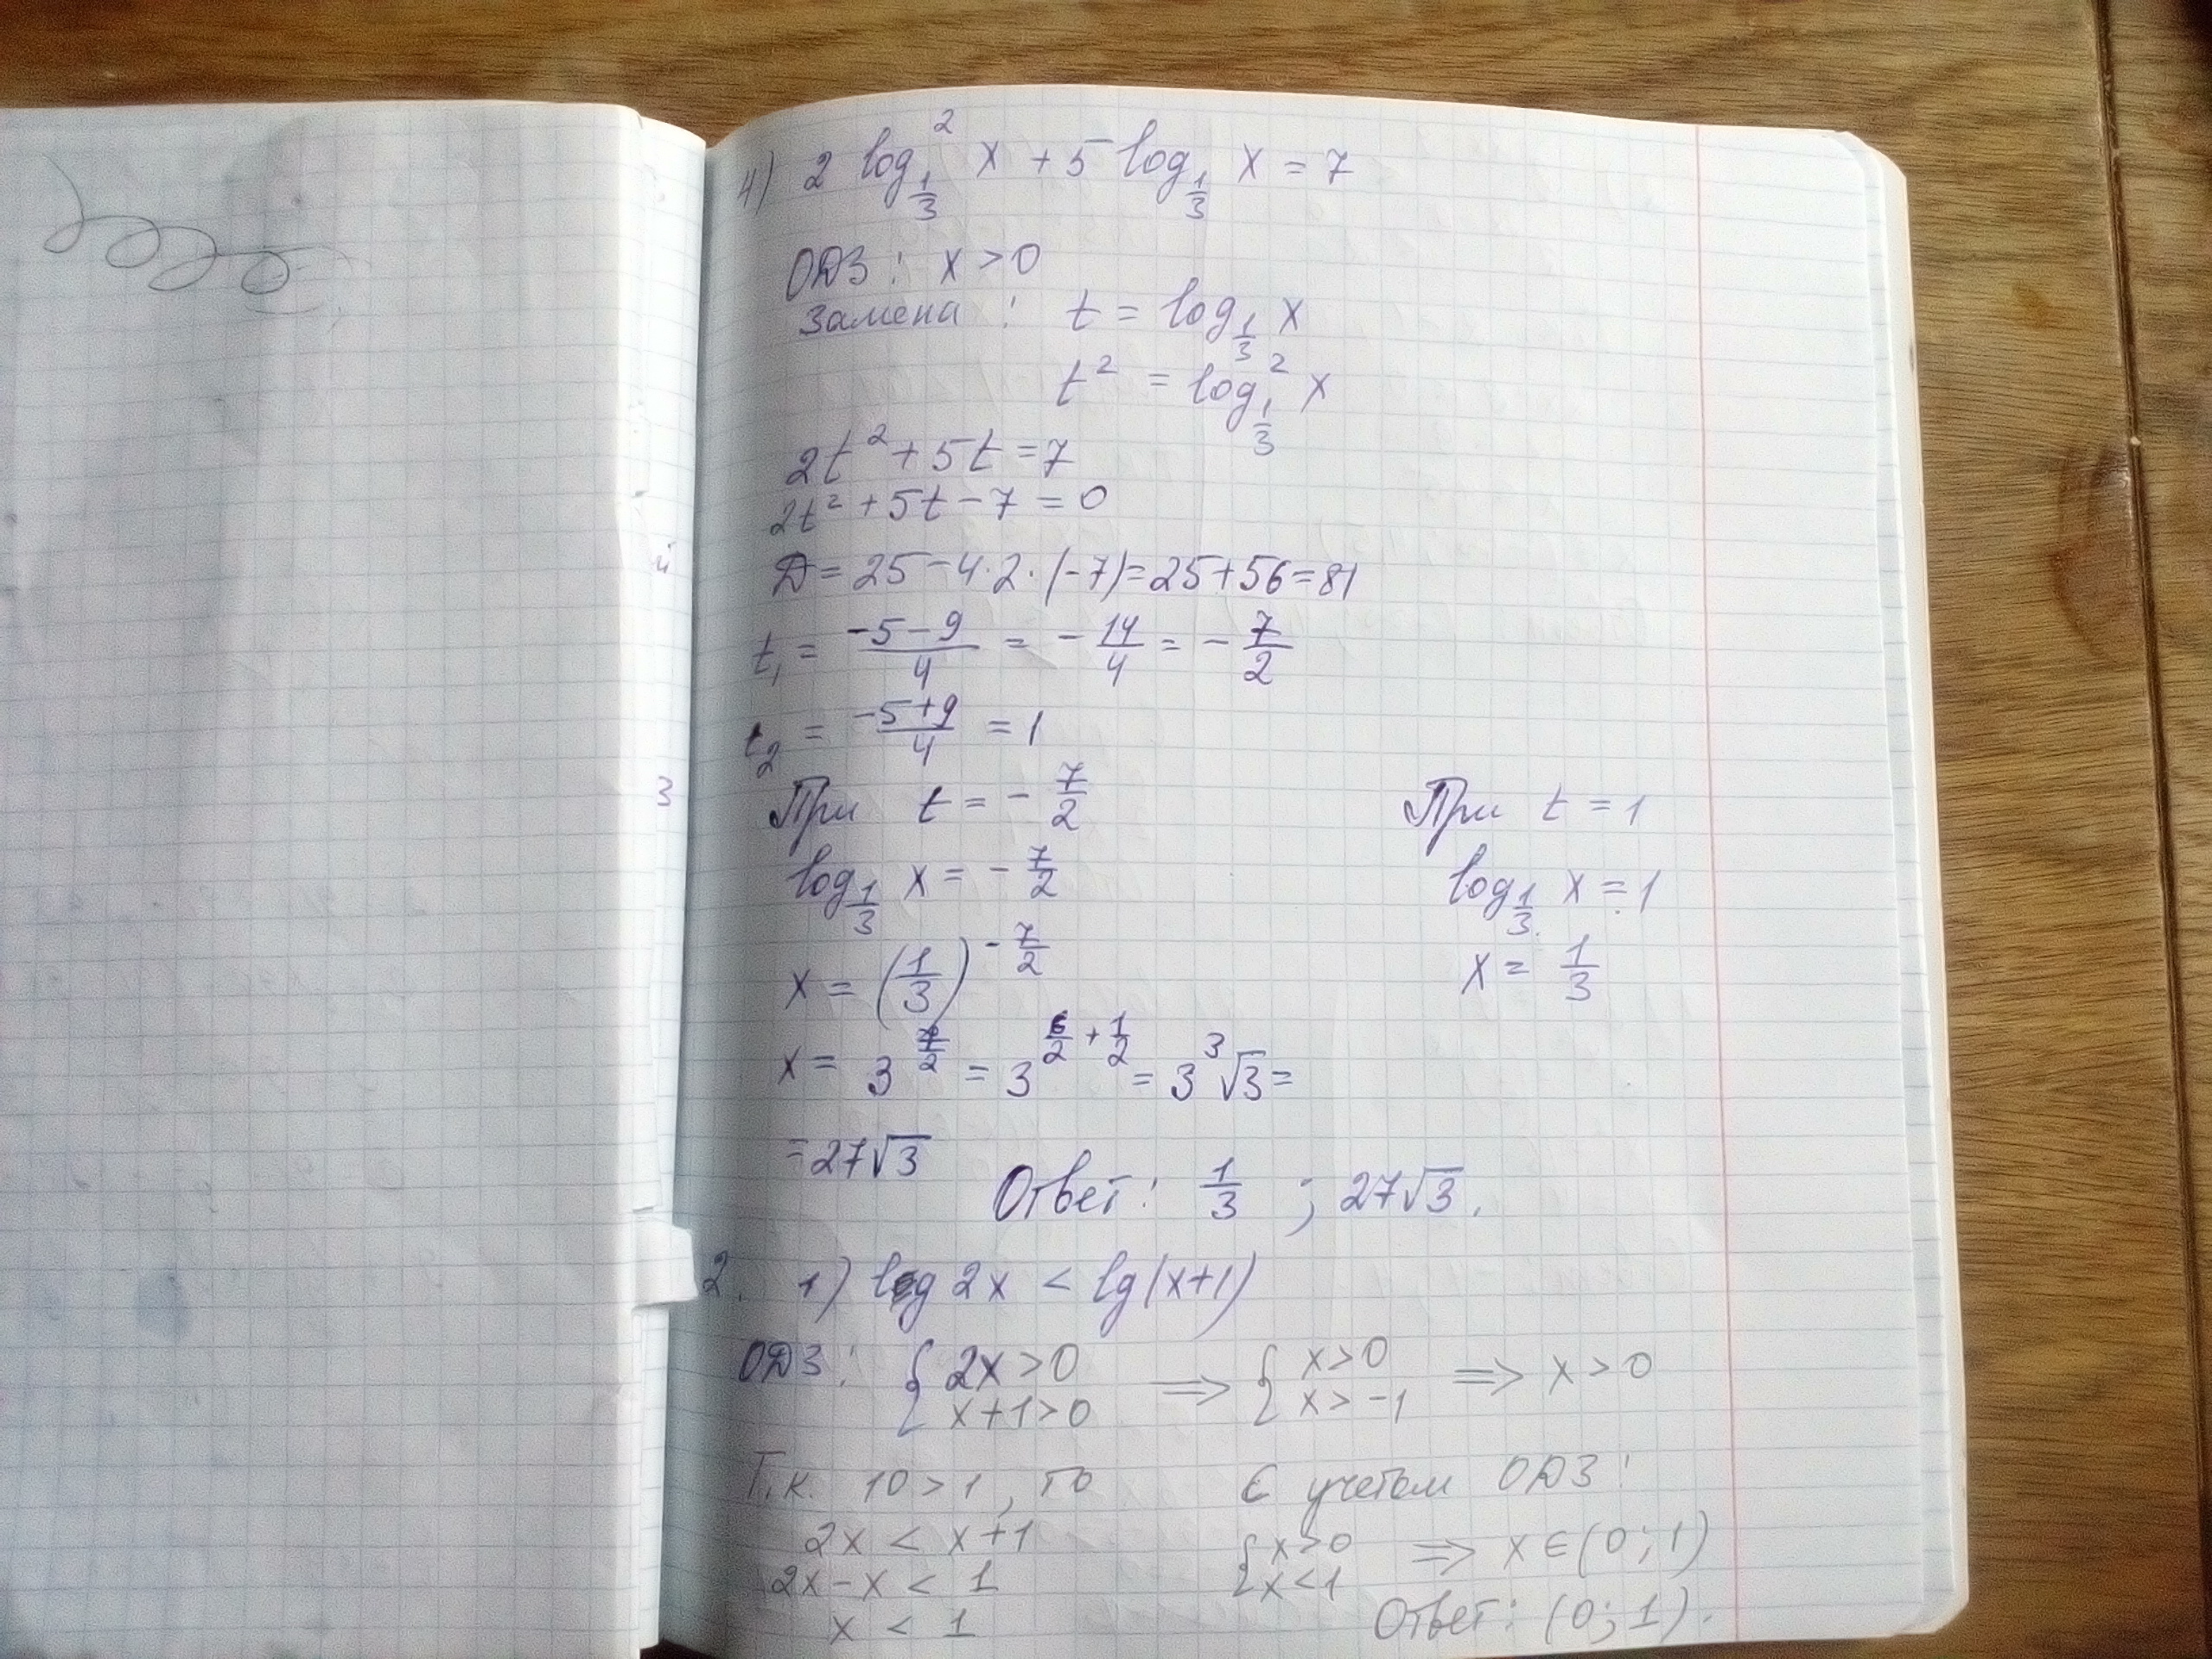 4) 2 log²_{1/3} x + 5 log_{1/3} x = 7
ОДЗ: x > 0
Замена: t = log_{1/3} x
t² = log²_{1/3} x
2t² + 5t = 7
2t² + 5t - 7 = 0
Д = 25 - 4·2·(-7) = 25 + 56 = 81
t₁ = (-5-9)/4 = -14/4 = -7/2
t₂ = (-5+9)/4 = 1
При t = -7/2
log_{1/3} x = -7/2
x = (1/3)^{-7/2}
x = 3^{7/2} = 3^{6/2 + 1/2} = 3³√3 =
= 27√3
При t = 1
log_{1/3} x = 1
x = 1/3
Ответ: 1/3 ; 27√3.
2. 1) lg 2x < lg(x+1)
ОДЗ: { 2x > 0 x+1 > 0 ⟹ { x > 0 x > -1 ⟹ x > 0
Т.к. 10 > 1, то
2x < x+1
2x - x < 1
x < 1
С учетом ОДЗ:
{ x > 0 x < 1 ⟹ x ∈ (0; 1)
Ответ: (0; 1).
й
3